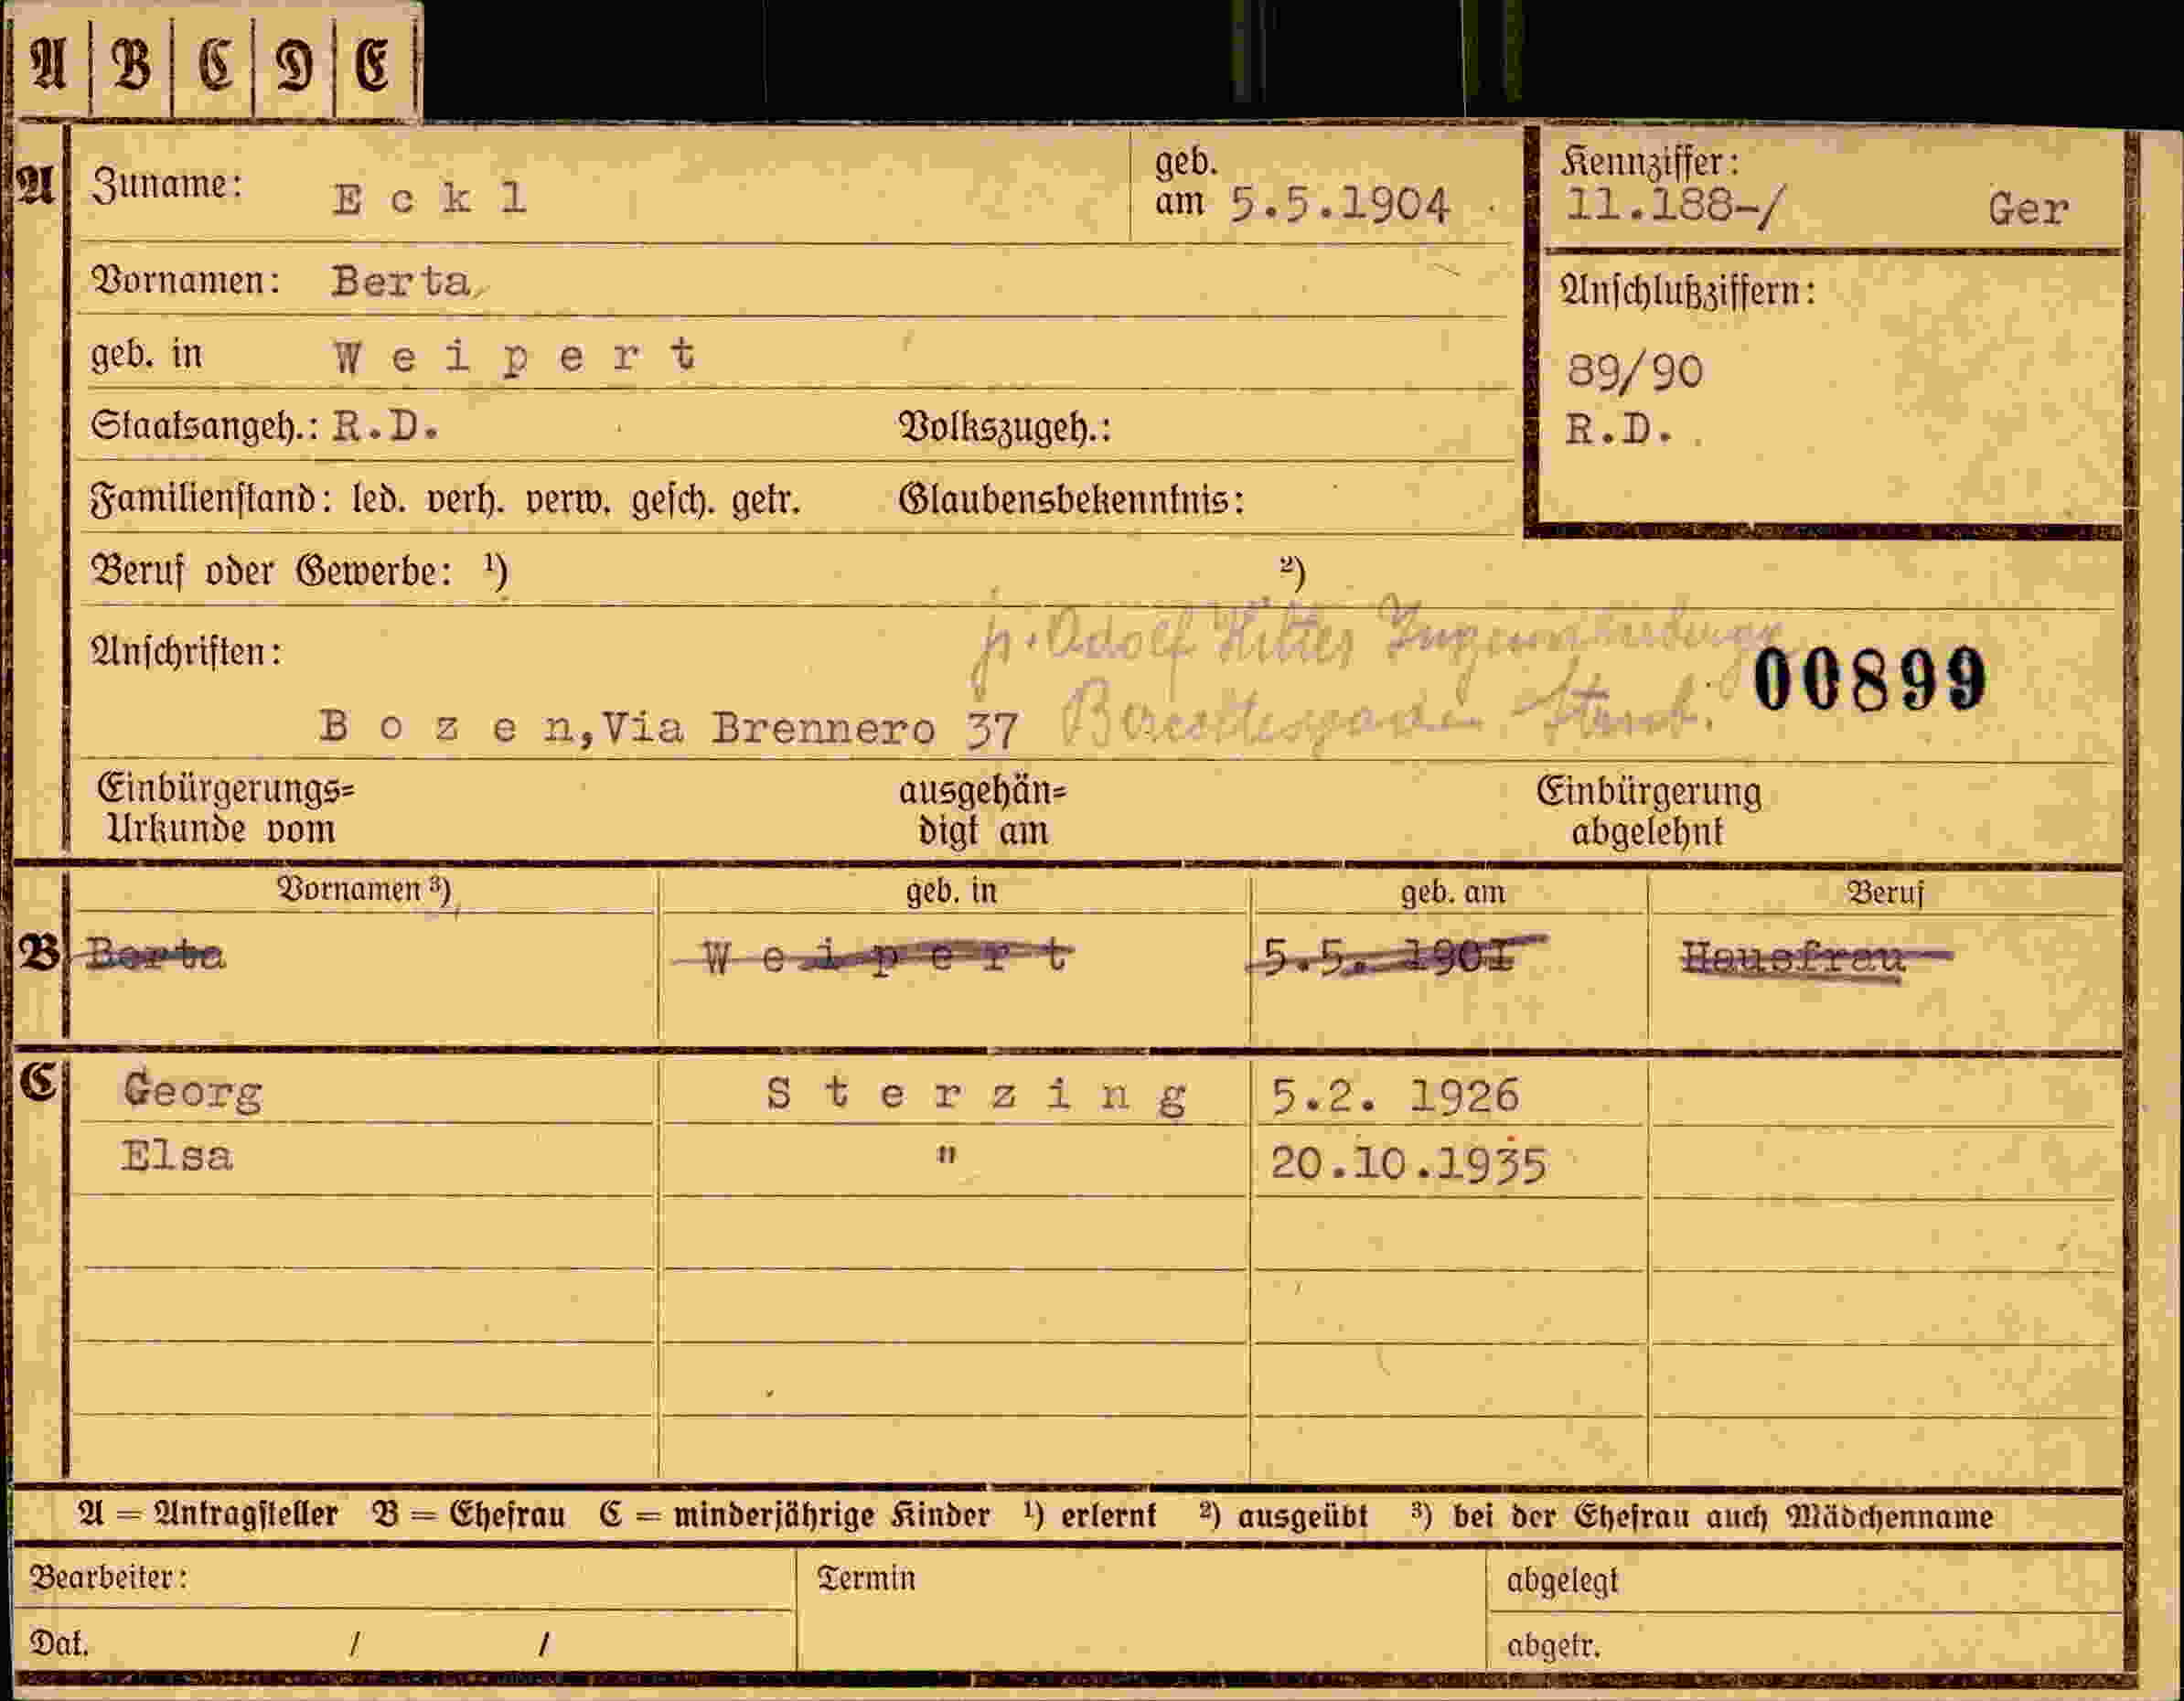 A B C D E
A Zuname: Eckl geb. am 5.5.1904 Kennziffer: 11.188-/ Ger
Vornamen: Berta Anschlußziffern:
geb. in Weipert 89/90
Staatsangeh.: R.D. Volkszugeh.: R.D.
Familienstand: led. verh. verw. gesch. getr. Glaubensbekenntnis:
Beruf oder Gewerbe: ¹) ²)
Anschriften: Adolf Hitler 00899
Bozen, Via Brennero 37
Einbürgerungs= ausgehän= Einbürgerung
Urkunde vom digt am abgelehnt
Vornamen ³) geb. in geb. am Beruf
B Berta Weipert 5.5. 1901 Hausfrau
C Georg Sterzing 5.2. 1926
Elsa " 20.10.1935
A = Antragsteller B = Ehefrau C = minderjährige Kinder ¹) erlernt ²) ausgeübt ³) bei der Ehefrau auch Mädchenname
Bearbeiter: Termin abgelegt
Dat. / / abgetr.